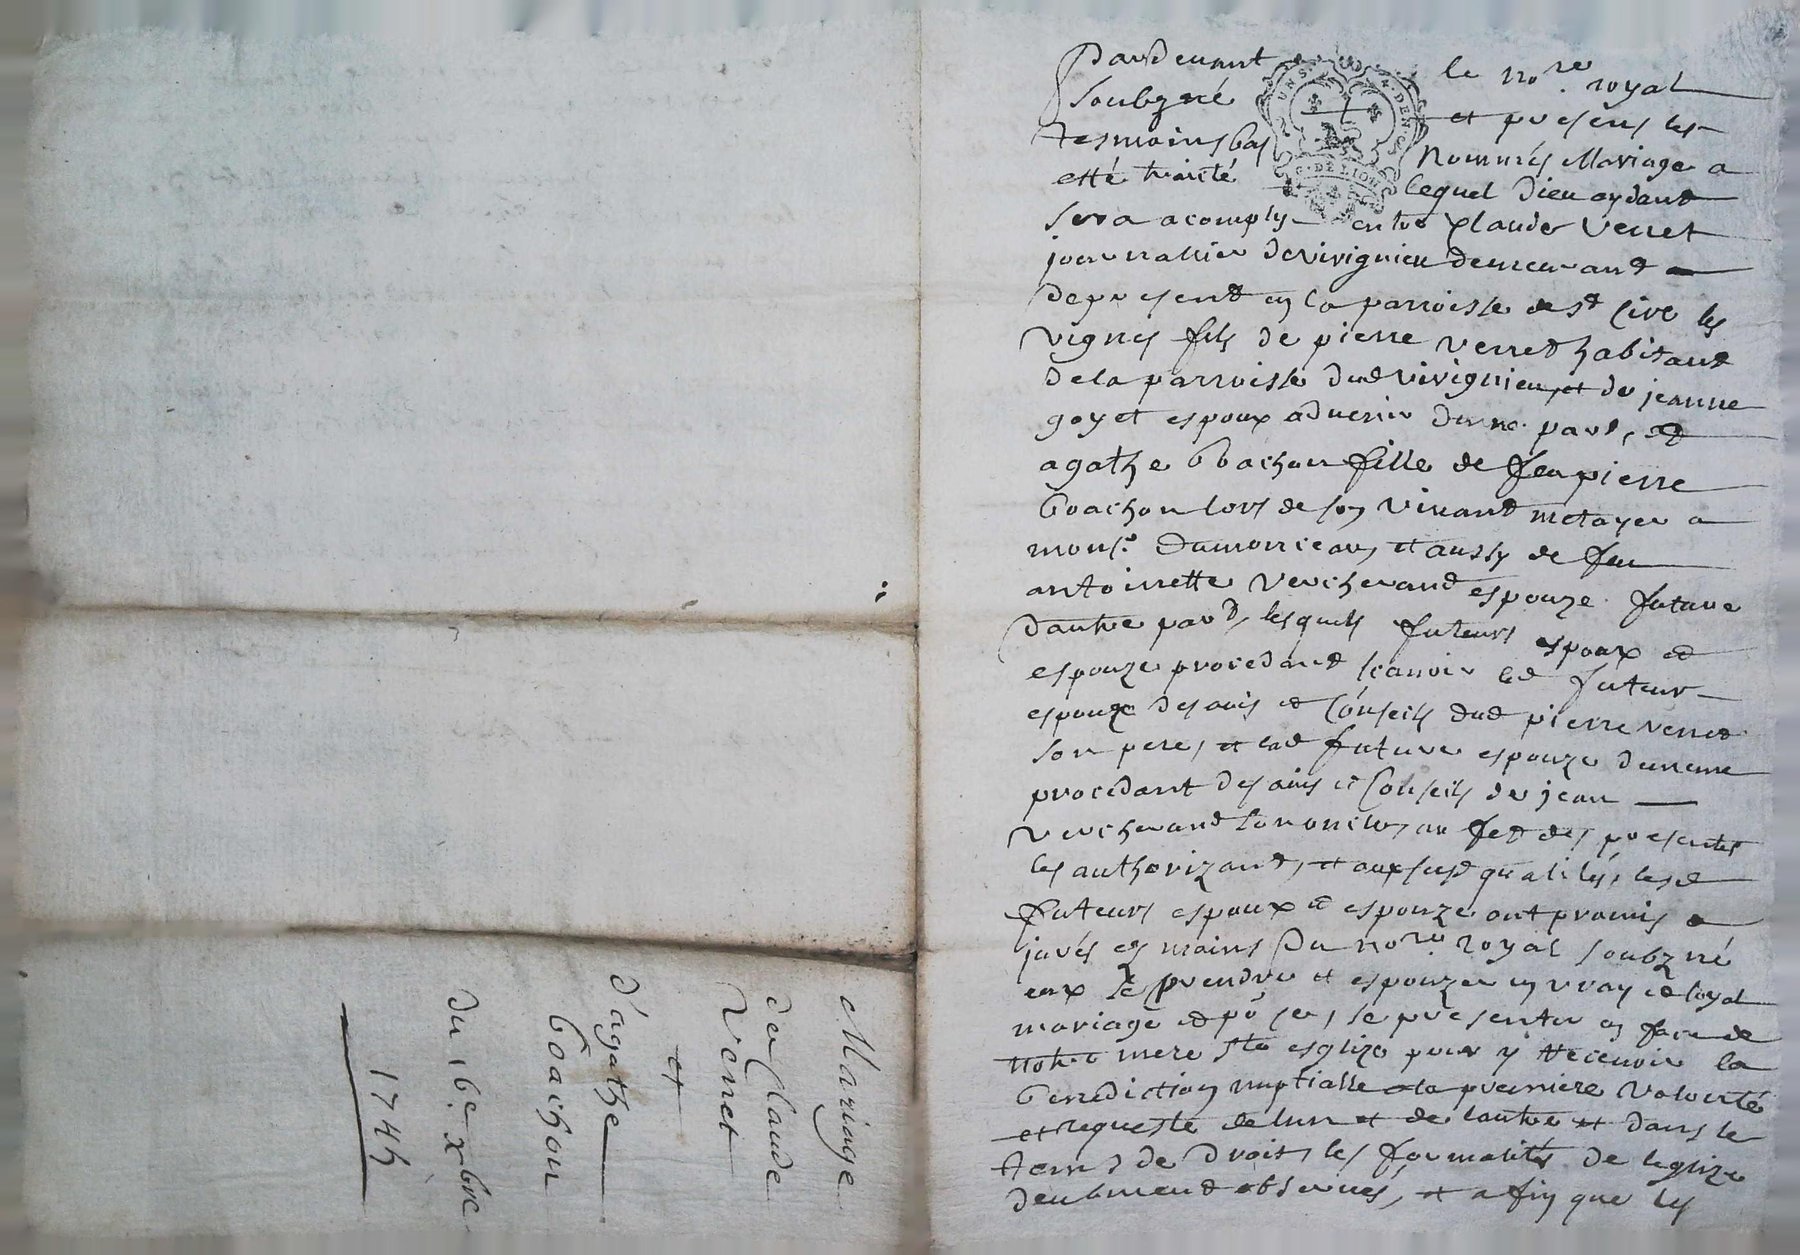 Pardevant le no.re royal
soubzné et presens les
tesmoins bas nommés Mariage a
esté traité lequel Dieu aydant
sera acomply entre Claude Verret
journallier de virignieu demeurant
de present en la parroisse de st Cire les
vignes fils de pierre verret habitant
de la parroisse dud virignieu, et de jeanne
goyet espoux advenir dune part, et
agathe Coachon fille de feu pierre
Coachon lors de son vivant metayer a
mons.r Dumonceau, et aussy de feu
antoinette Vercherand espouze future
dautre part, lesquels futurs espoux et
espouze procedant scavoir led futeur
espoux des avis et Conseils dud pierre verret
son pere, et lad future espouze de mesme
procedant des avis et Conseils de jean
Vercherand son oncle, au fet des presentes
les authorizant, et aux susd qualités, lesd
futeurs espoux et espouze ont promis
jurés es mains du no.re royal soubzné
eux se prendre et espouzer en vray et loyal
mariage et po.r ce, se presenter en face de
notre mere s.te esglize pour y recevoir la
benediction nuptialle a la premiere volonté
et requeste de lun et de lautre et dans le
tems de droit, les formalités de leglize
deubment observées, et afin que les
Mariage
de Claude
Verret
et
d'agathe
Coachon
du 16e xbre
1745
UNS
DEN
G. DE LION